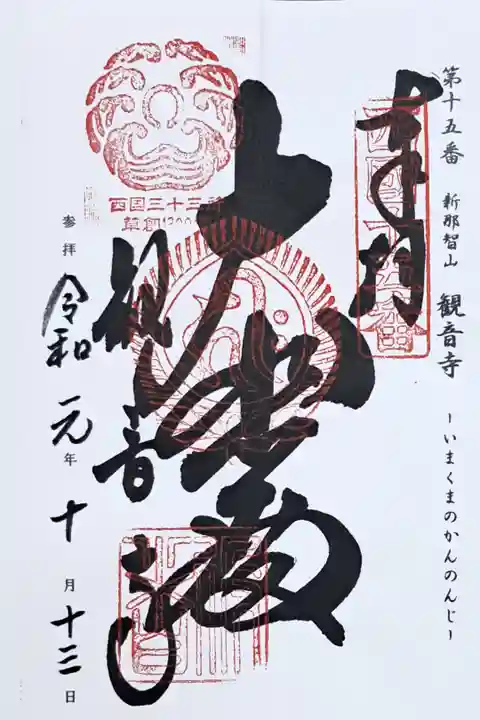 第十五番 新那智山 観音寺 -いまくまのかんのんじ-
奉拝
西国十五番
西国三十三所
草創1300年
観音寺
参拝 令和元年十月十三日